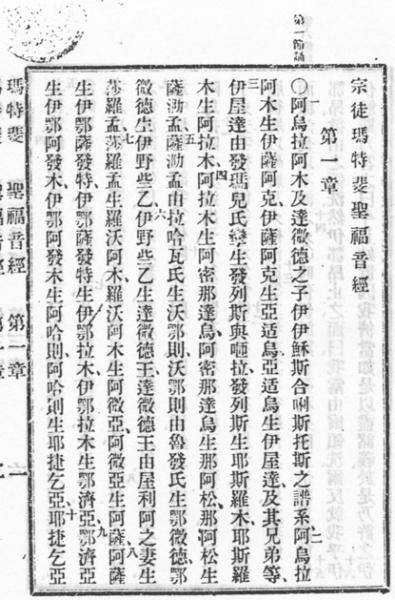 宗徒瑪特斐聖福音經
第一章
第一節誦
〇一阿烏拉阿木及達微德之子伊伊穌斯合唎斯托斯之譜系二阿烏拉
阿木生伊薩阿克伊薩阿克生亞适烏亞适烏生伊屋達及其兄弟等
三伊屋達由發瑪兒氏孿生發列斯與咂拉發列斯生耶斯羅木耶斯羅
木生阿拉木四阿拉木生阿密那達烏阿密那達烏生那阿松那阿松生
薩泐孟五薩泐孟由拉哈瓦氏生沃鄂則沃鄂則由魯發氏生鄂微德鄂
微德生伊野些乙六伊野些乙生達微德王達微德王由屋利阿之妻生
莎羅孟七莎羅孟生羅沃阿木羅沃阿木生阿微亞阿微亞生阿薩八阿薩
生伊鄂薩發特伊鄂薩發特生伊鄂拉木伊鄂拉木生鄂濟亞九鄂濟亞
生伊鄂阿發木伊鄂阿發木生阿哈則阿哈則生耶捷乞亞十耶捷乞亞
瑪特斐 聖福音經 第一章 一